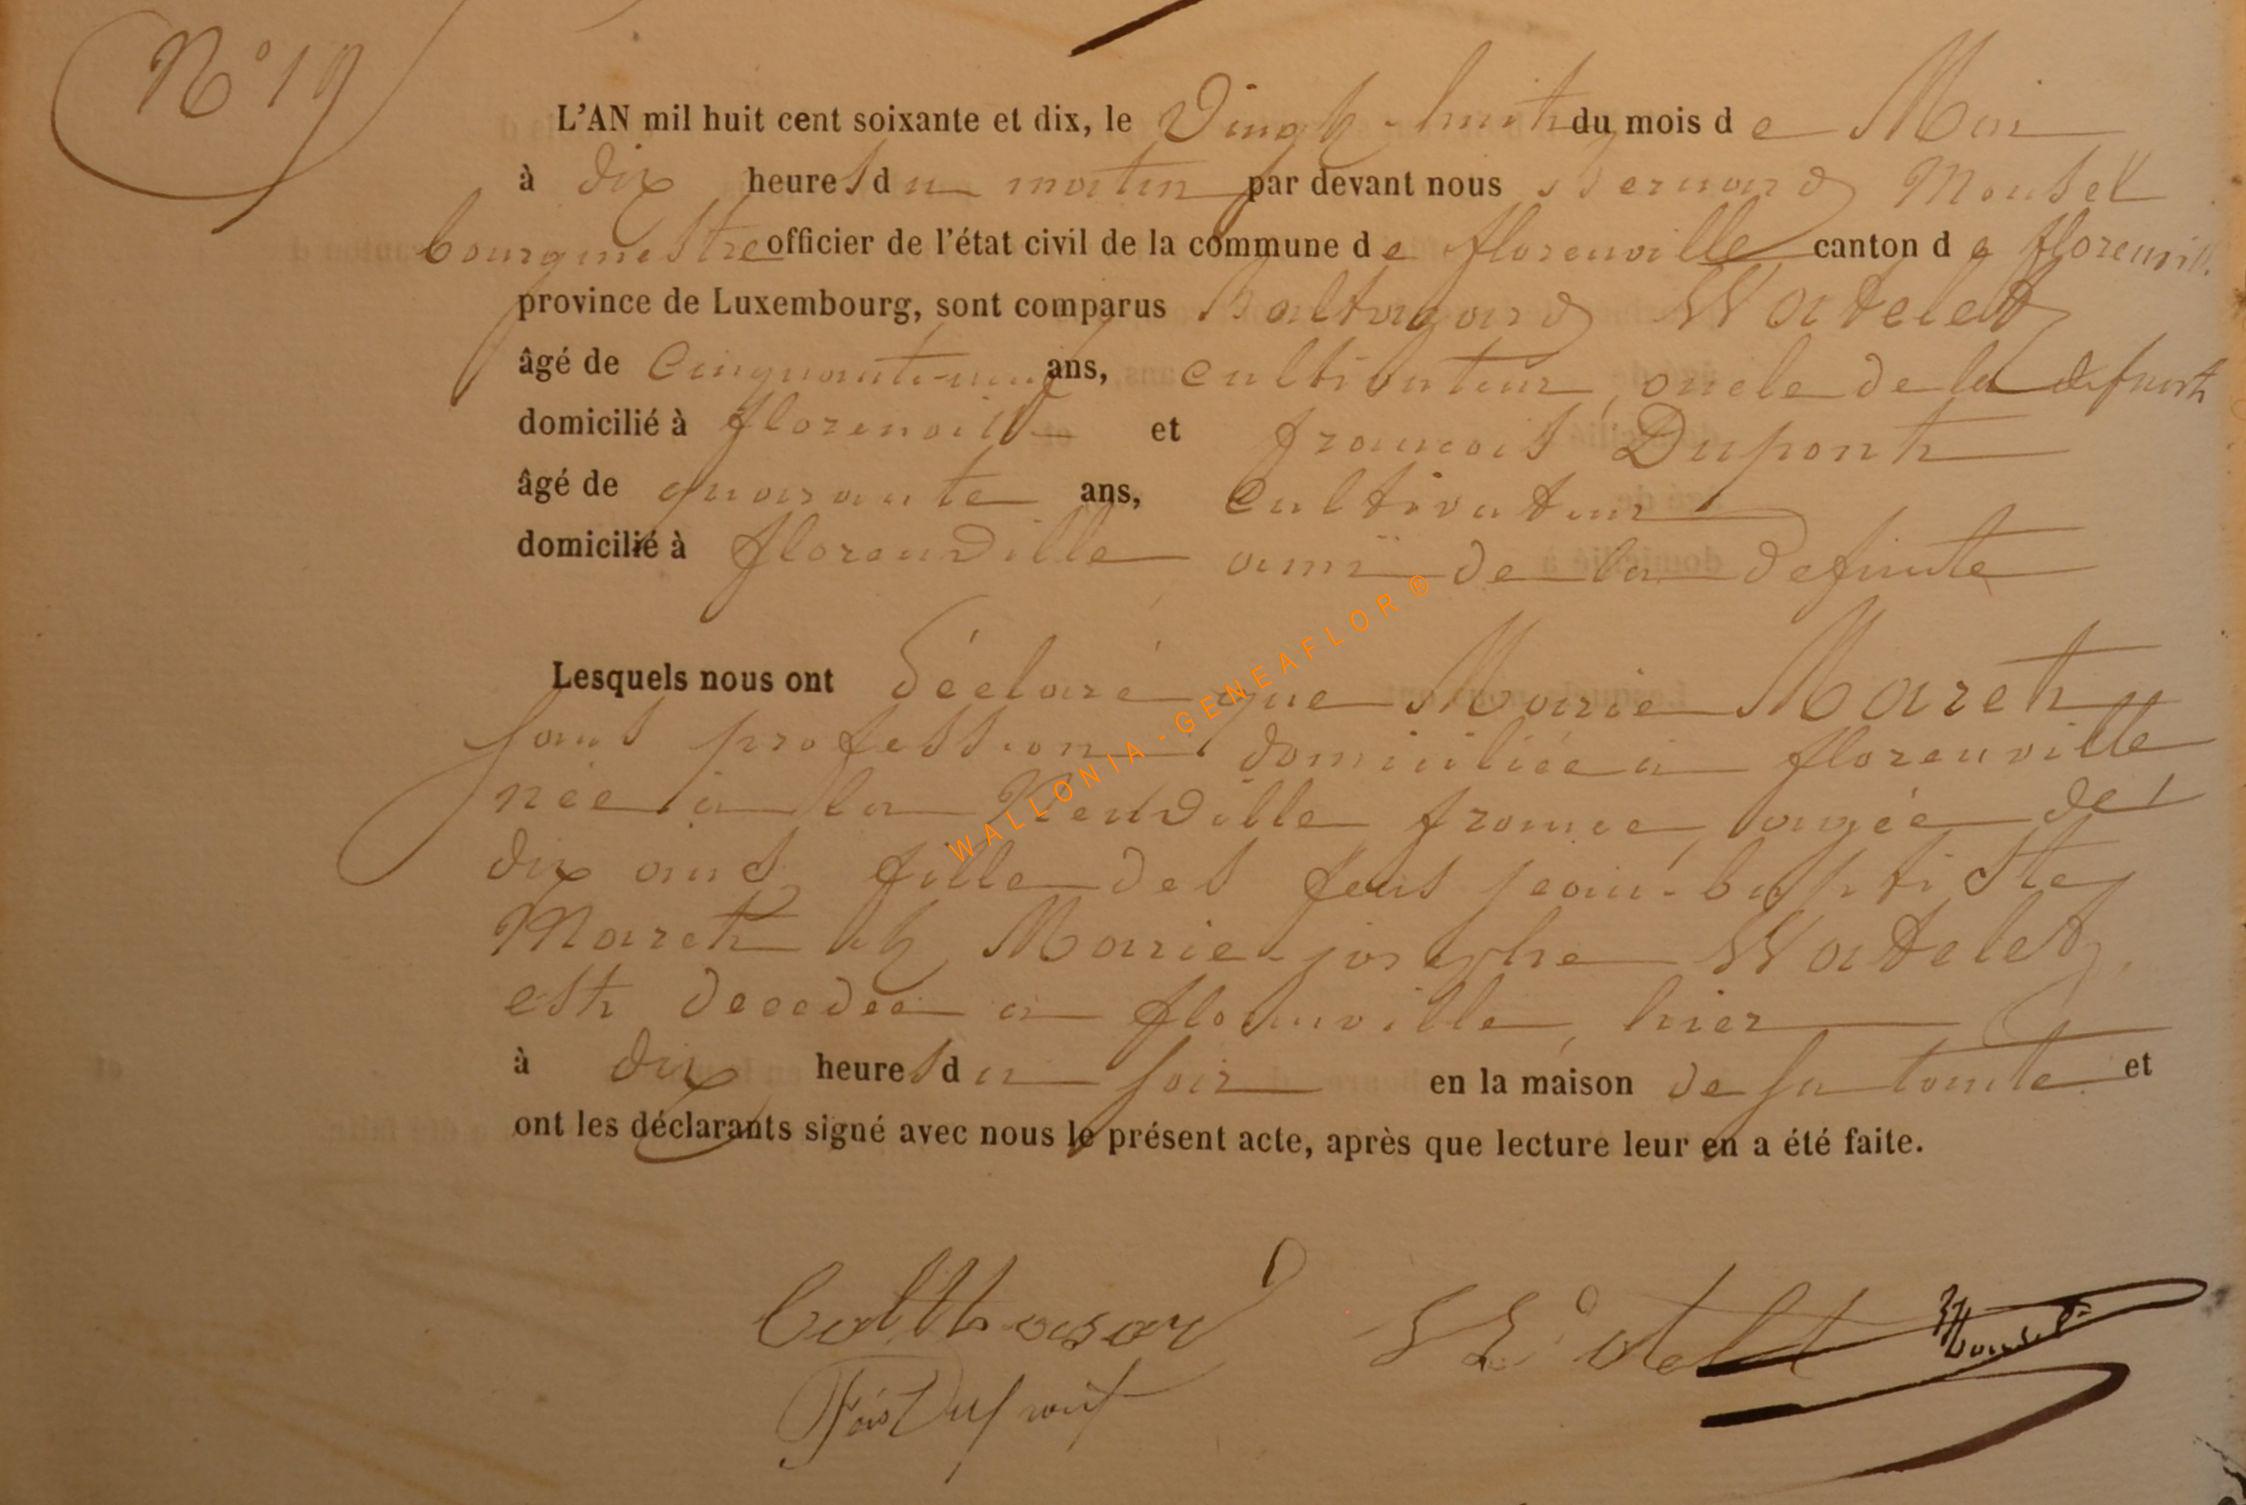 N° 19
L'AN mil huit cent soixante et dix, le Vingt-huit du mois de Mai
à dix heures du matin par devant nous Bernard Mousel
bourgmestre officier de l'état civil de la commune de florenville canton de florenvill.
province de Luxembourg, sont comparus Baltazard Watelet
âgé de Cinquante- ans, Cultivateur, oncle de la defunte
domicilié à florenville et francois Dupont
âgé de quarante ans, Cultivateur
domicilié à florenville ami de la defunte
WALLONIA - GENEAFLOR ®
Lesquels nous ont déclaré que Marie Maret
sans profession domiciliée a florenville
née a la Neuville france, agée de
dix ans, fille des feus jean-baptiste
Maret et Marie-josephe Watelet,
est decedée a florenville, hier
à dix heures du soir en la maison de sa tante et
ont les déclarants signé avec nous le présent acte, après que lecture leur en a été faite.
Balthasard Watelet Mousel
Fois Dupont